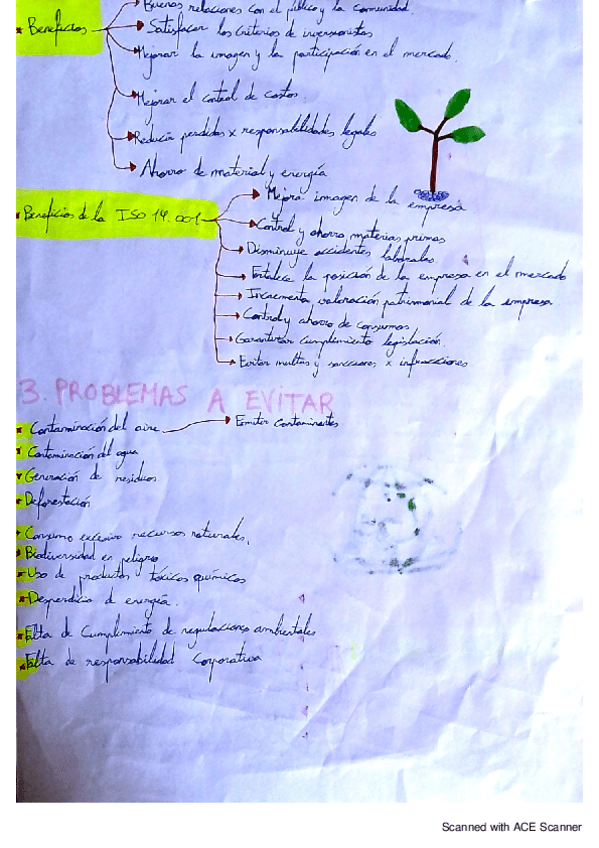 Buenas relaciones con el público y la comunidad.
* Beneficios
Satisfacer los criterios de inversionistas
Mejorar la imagen y la participación en el mercado.
Mejorar el control de costos.
Reducir perdidas x responsabilidades legales
Ahorro de material y energía
* Beneficios de la ISO 14.001
Mejora imagen de la empresa
Control y ahorro materias primas
Disminuye accidentes laborales.
Fortalece la posición de la empresa en el mercado
Incrementa valoración patrimonial de la empresa
Control y ahorro de consumos
Garantizar cumplimiento legislación.
Evitar multas y sanciones x infracciones
3. PROBLEMAS A EVITAR
* Contaminación del aire
Emitir contaminantes
* Contaminación del agua
* Generación de residuos
* Deforestación
* Consumo excesivo recursos naturales.
* Biodiversidad en peligro
* Uso de productos tóxicos químicos
* Desperdicio de energía.
* Falta de Cumplimiento de regulaciones ambientales
* Falta de responsabilidad Corporativa
Scanned with ACE Scanner